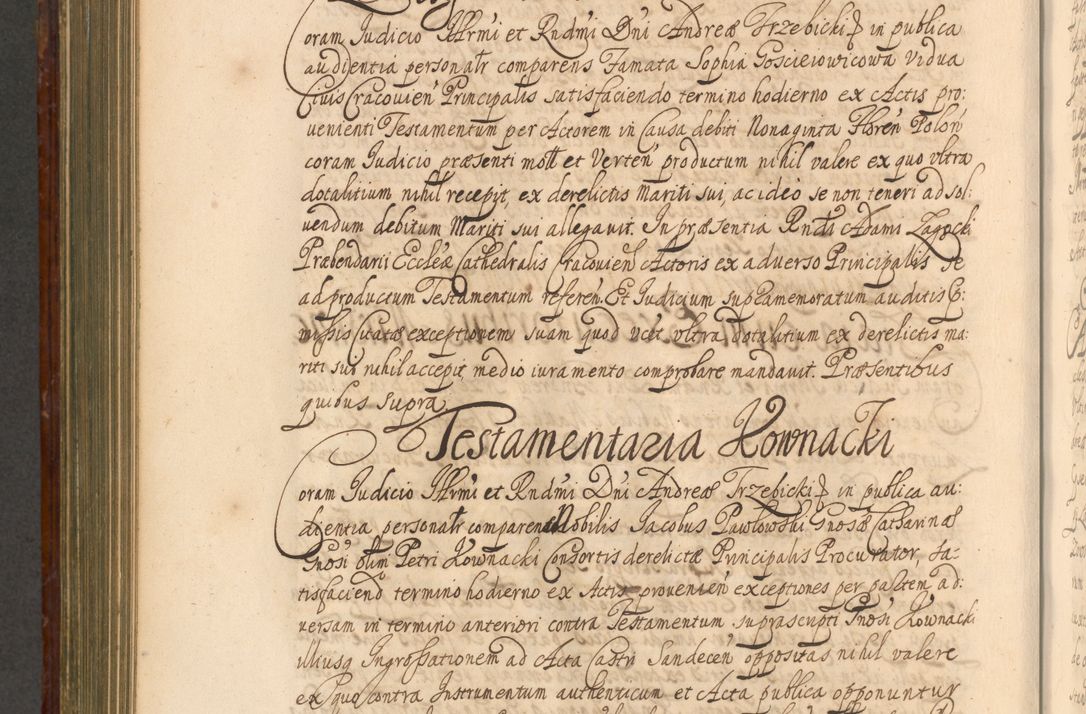 Coram Judicio Illrmi et Rndmi Dni Andreæ Trzebicki Ep̃i in publica
audientia personalr comparens Famata Sophia Goscieiowicowa Vidua
Civis Cracovien̄ Principalis satisfaciendo termino hodierno ex Actis pro:
venienti Testamentum per Actorem in Causa debiti Nonaginta Floren̄ Polon̄
coram Judicio præsenti mott et Verten̄ productum nihil valere ex quo vltra
dotalitium nihil recepit, ex derelictis Mariti sui, ac ideo se non teneri ad sol:
vendum debitum Mariti sui allegavit. In præsentia Rndi Adami
Præbendarii Eccleæ Cathedralis Cracovien̄ Actoris ex adverso Principalis se
ad productum Testamentum referen̄. Et Judicium supramemoratum auditis p:
missis Citatæ exceptionem suam quod vcet vltra dotalitium ex derelictis ma:
riti sui nihil accepit, medio iuramento comprobare mandavit. Præsentibus
quibus supra
Testamentaria Kownacki
Coram Judicio Illrmi et Rndmi Dni Andreæ Trzebicki Ep̃i in publica au:
dientia personalr comparens Nobilis Jacobus Pawłowski Gnosæ Catharinæ
Gnosi olim Petri Kownacki Consortis derelictæ Principalis Procurator, sa:
tisfaciend termino hodierno ex Actis provenien̄ exceptiones per partem ad:
versam in termino anteriori contra Testamentum suprascripti Gnosi Kownacki
illiusq Ingrossationem ad Acta Castri Sandecen̄ oppositas nihil valere
ex quo contra Instrumentum authenticum et Acta publica opponuntur